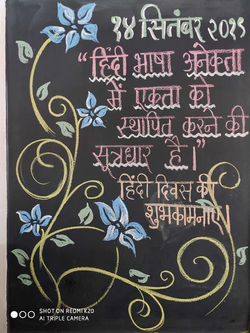 १४ सितंबर २०१९
“हिंदी भाषा अनेकता
में एकता को
स्थापित करने की
सूत्रधार है।”
हिंदी दिवस की
शुभकामनाएँ।
SHOT ON REDMI K20
AI TRIPLE CAMERA